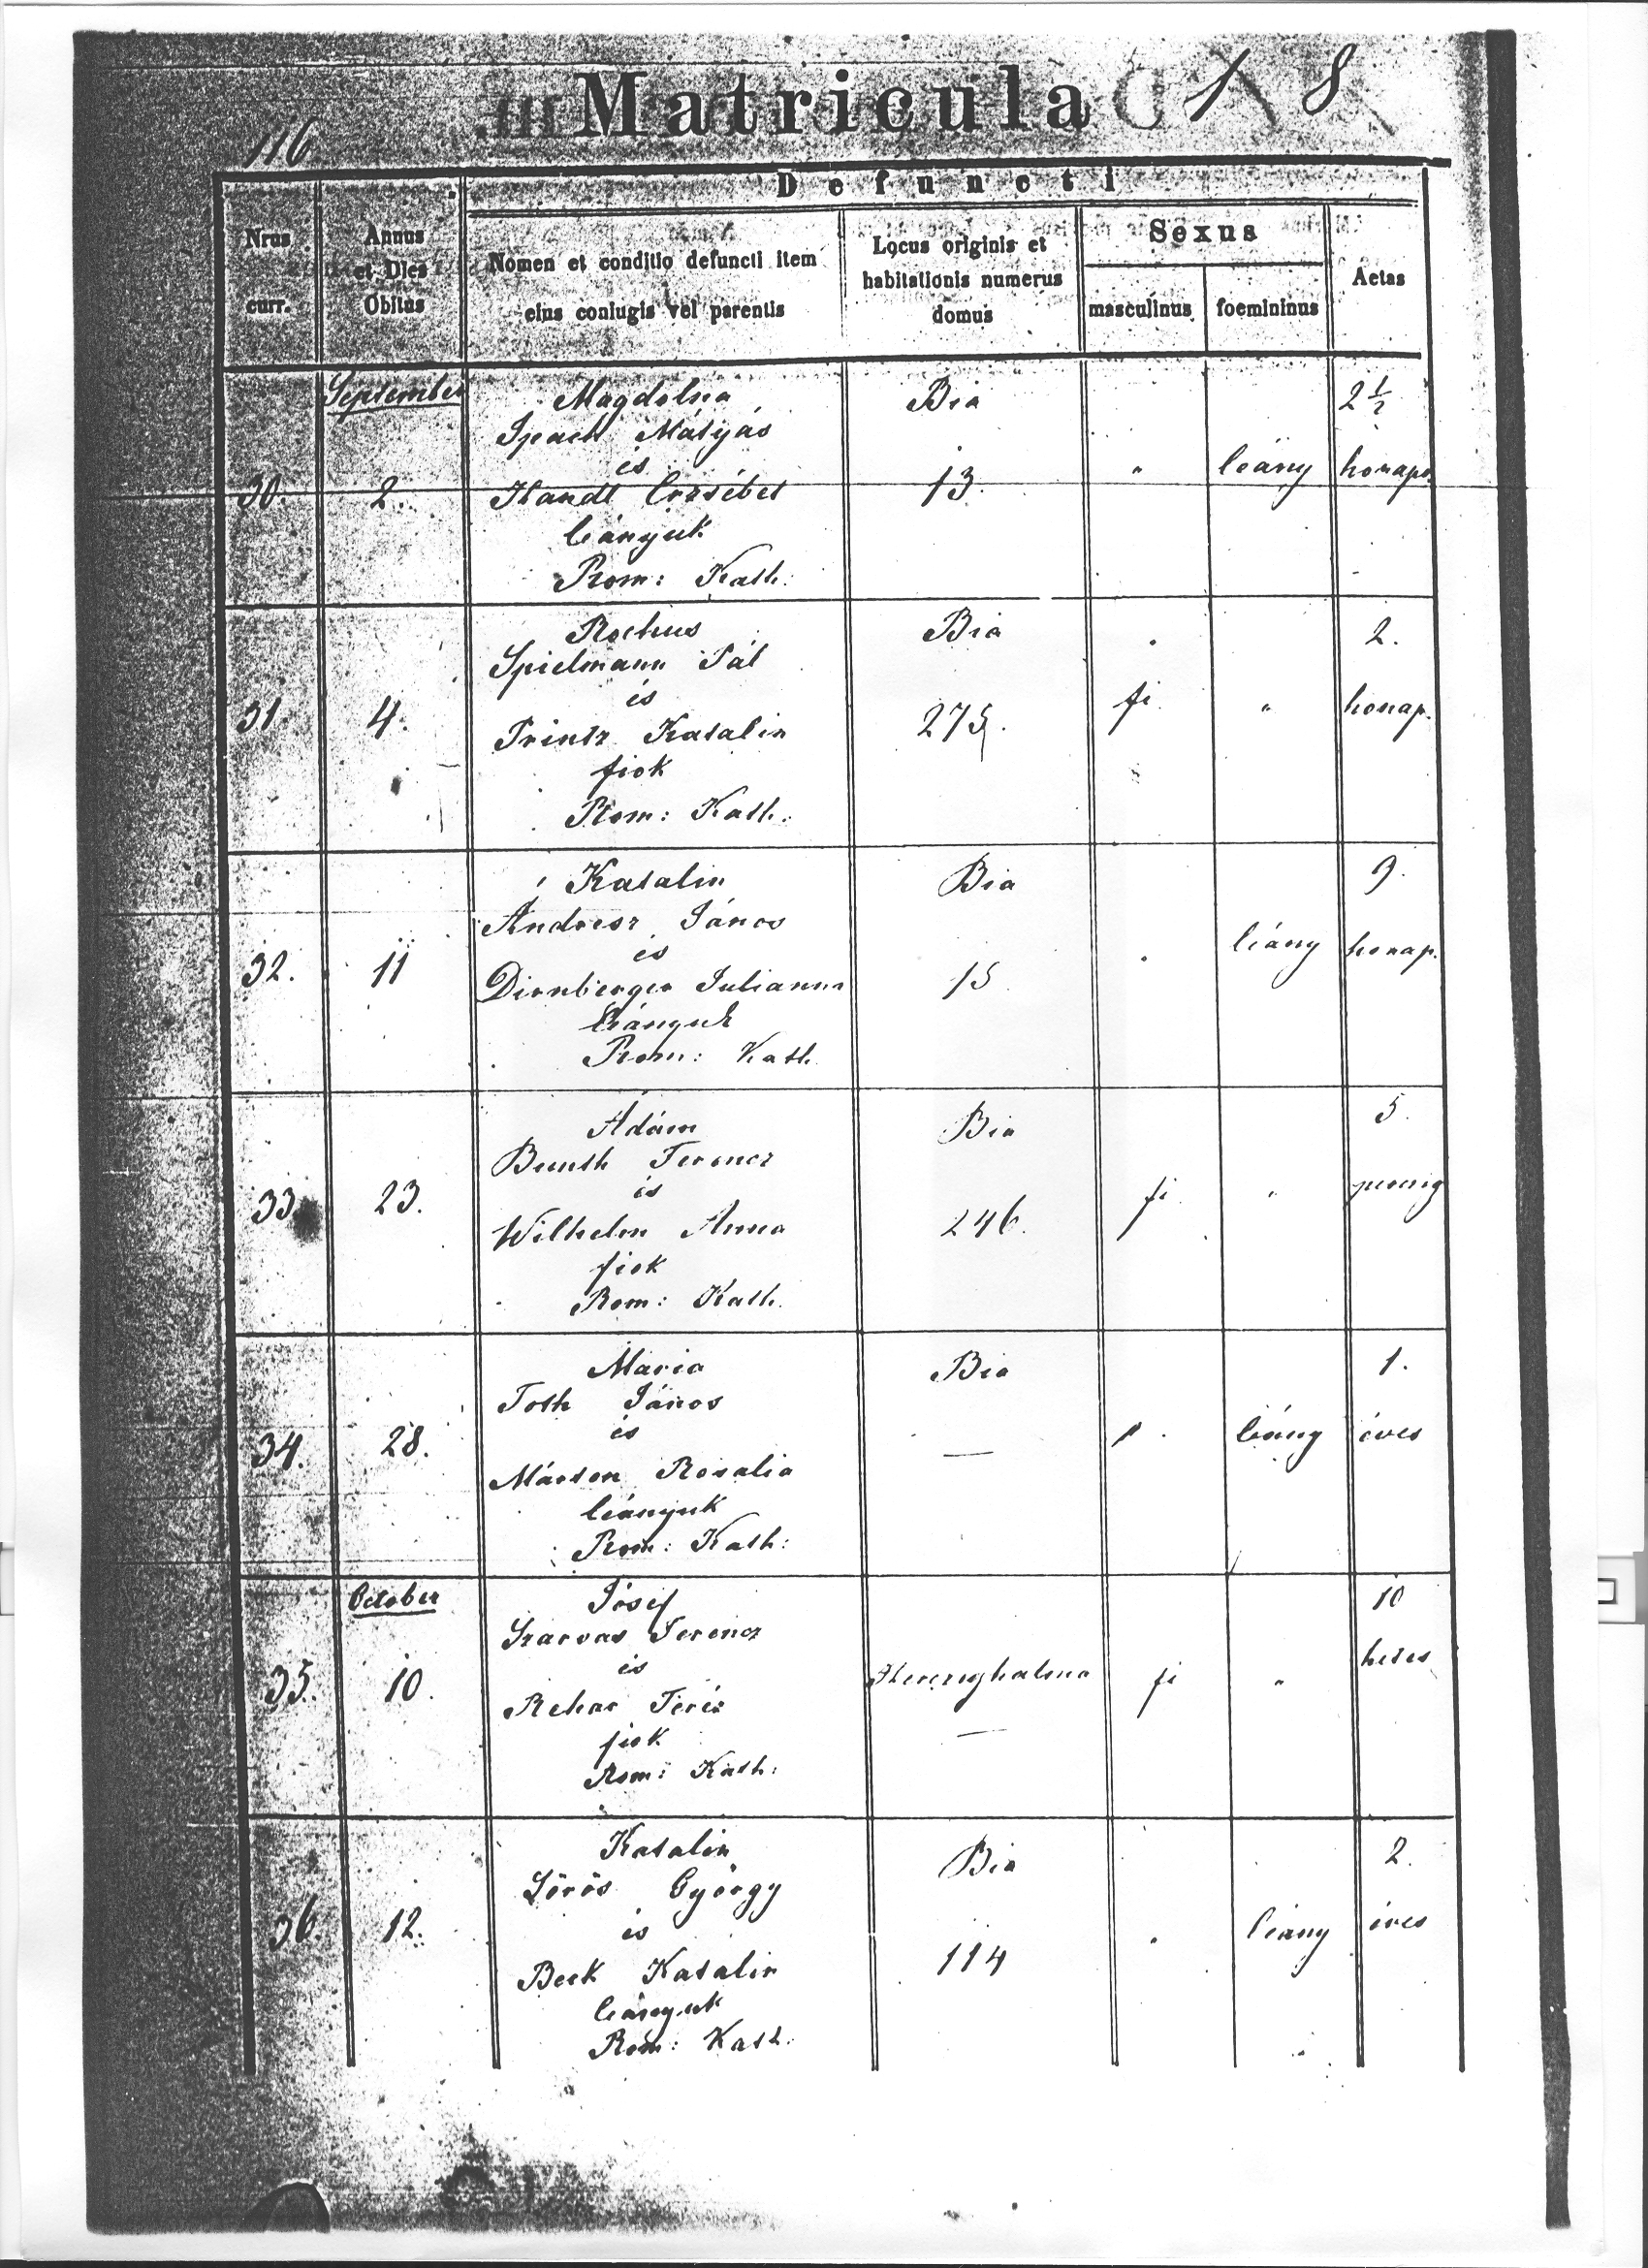 116
Matricula 18
Defuncti
Nrus curr.
Annus et Dies Obitus
Nomen et conditio defuncti item eius coniugis vel parentis
Locus originis et habitationis numerus domus
Sexus
masculinus foemininus
Aetas
September
30. 2.
Magdolna
Mátyás
és
Handl Erzsébet
leányuk
Rom: Kath:
Bia
13.
" leány
2 1/2
honapo.
31. 4.
Rochus
Spielmann Pál
és
Printz Katalin
fiok
Rom: Kath:
Bia
275.
fi "
2.
honap.
32. 11
Katalin
Andresz János
és
Dirnberger Julianna
leányuk
Rom: Kath
Bia
15
" leány
9.
honap.
33. 23.
Ádám
Bunth Ferencz
és
Wilhelm Anna
fiok
Rom: Kath.
Bia
246.
fi "
5.
34. 28.
Maria
Toth János
és
Márton Rosalia
leányuk
Rom: Kath:
Bia
—
" leány
1.
éves
October
35. 10.
Jósef
Szarvas Ferencz
és
Rehar Teréz
fiok
Rom: Kath:
Herczeghalma
—
fi "
10
hetes
36. 12.
Katalin
Sörös György
és
Beck Katalin
leányuk
Rom: Kath:
Bia
114
" leány
2.
éves